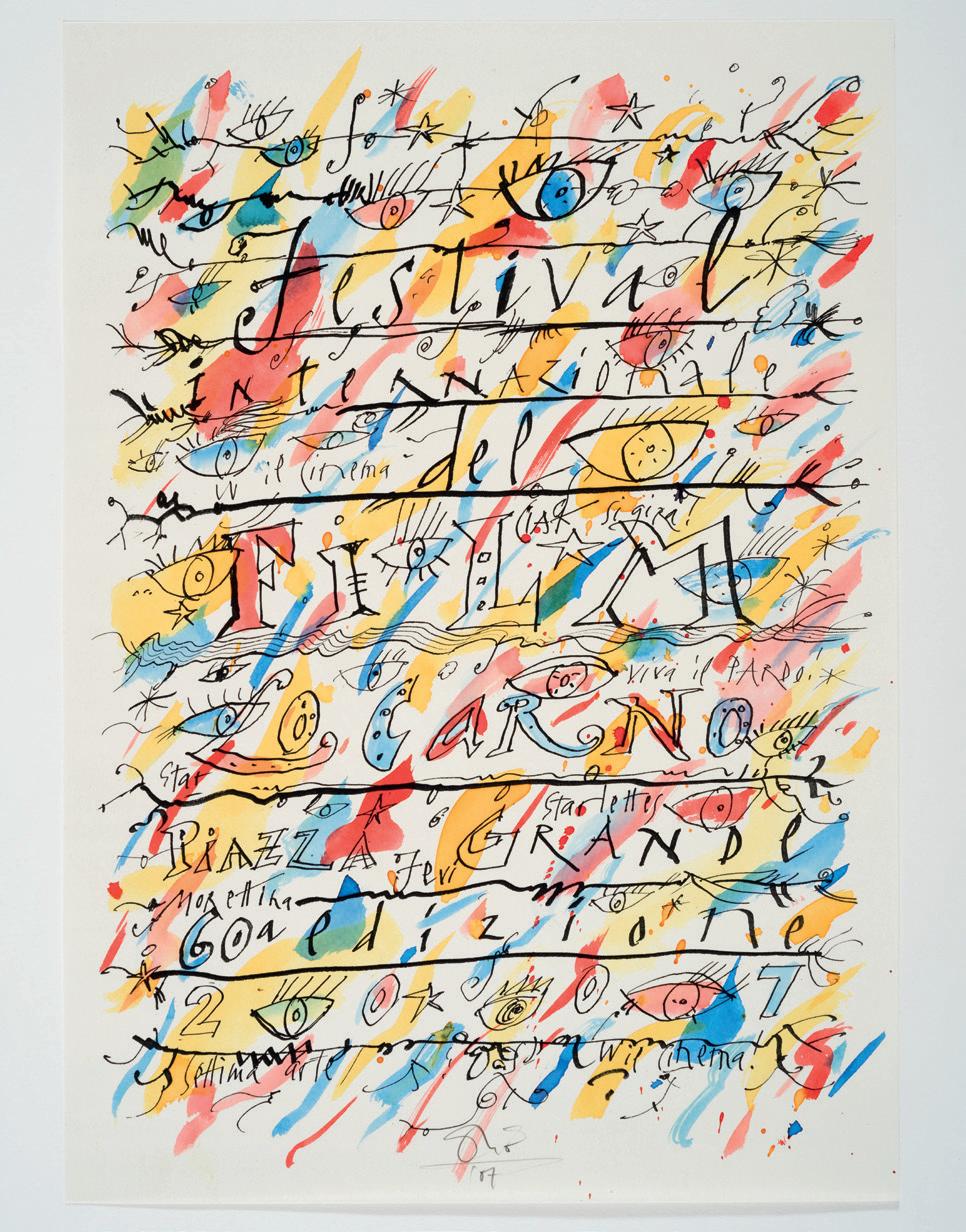 festival
internazionale
del
W il cinema
ciak si gira!
FiLM
viva il PARDO!
LOCARNO
Star
Starlettes
PiAZZA GRANDE
Fevi
Morettina
60a edizione
2007
Settima arte W il cinema!
'07